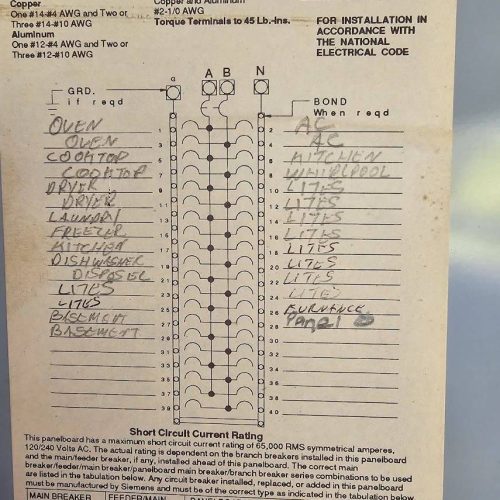 Copper
One #14-#4 AWG and Two or
Three #14-#10 AWG
Aluminum
One #12-#4 AWG and Two or
Three #12-#10 AWG
Copper and Aluminum
#2-1/0 AWG
Torque Terminals to 45 Lb.-Ins.
FOR INSTALLATION IN
ACCORDANCE WITH
THE NATIONAL
ELECTRICAL CODE
G A B N
GRD.
if reqd
BOND
When reqd
OVEN 1 2 AC
OVEN 3 4 AC
COOKTOP 5 6 KITCHEN
COOKTOP 7 8 WHIRLPOOL
DRYER 9 10 LITES
DRYER 11 12 LITES
LAUNDRY 13 14 LITES
FREEZER 15 16 LITES
KITCHEN 17 18 LITES
DISHWASHER 19 20 LITES
DISPOSER 21 22 LITES
LITES 23 24 LITES
LITES 25 26 FURNANCE
BASEMENT 27 28 Panel
BASEMENT 29 30
31 32
33 34
35 36
37 38
39 40
Short Circuit Current Rating
This panelboard has a maximum short circuit current rating of 65,000 RMS symmetrical amperes,
120/240 Volts AC. The actual rating is dependent on the branch breakers installed in this panelboard
and the main/feeder breaker, if any, installed ahead of this panelboard. The correct main
breaker/feeder/main breaker/panelboard main breaker/branch breaker series combinations to be used
are listed in the tabulation below. Any circuit breaker installed, replaced, or added in this panelboard
must be manufactured by Siemens and must be of the correct type as indicated in the tabulation below
MAIN BREAKER FEEDER/MAIN